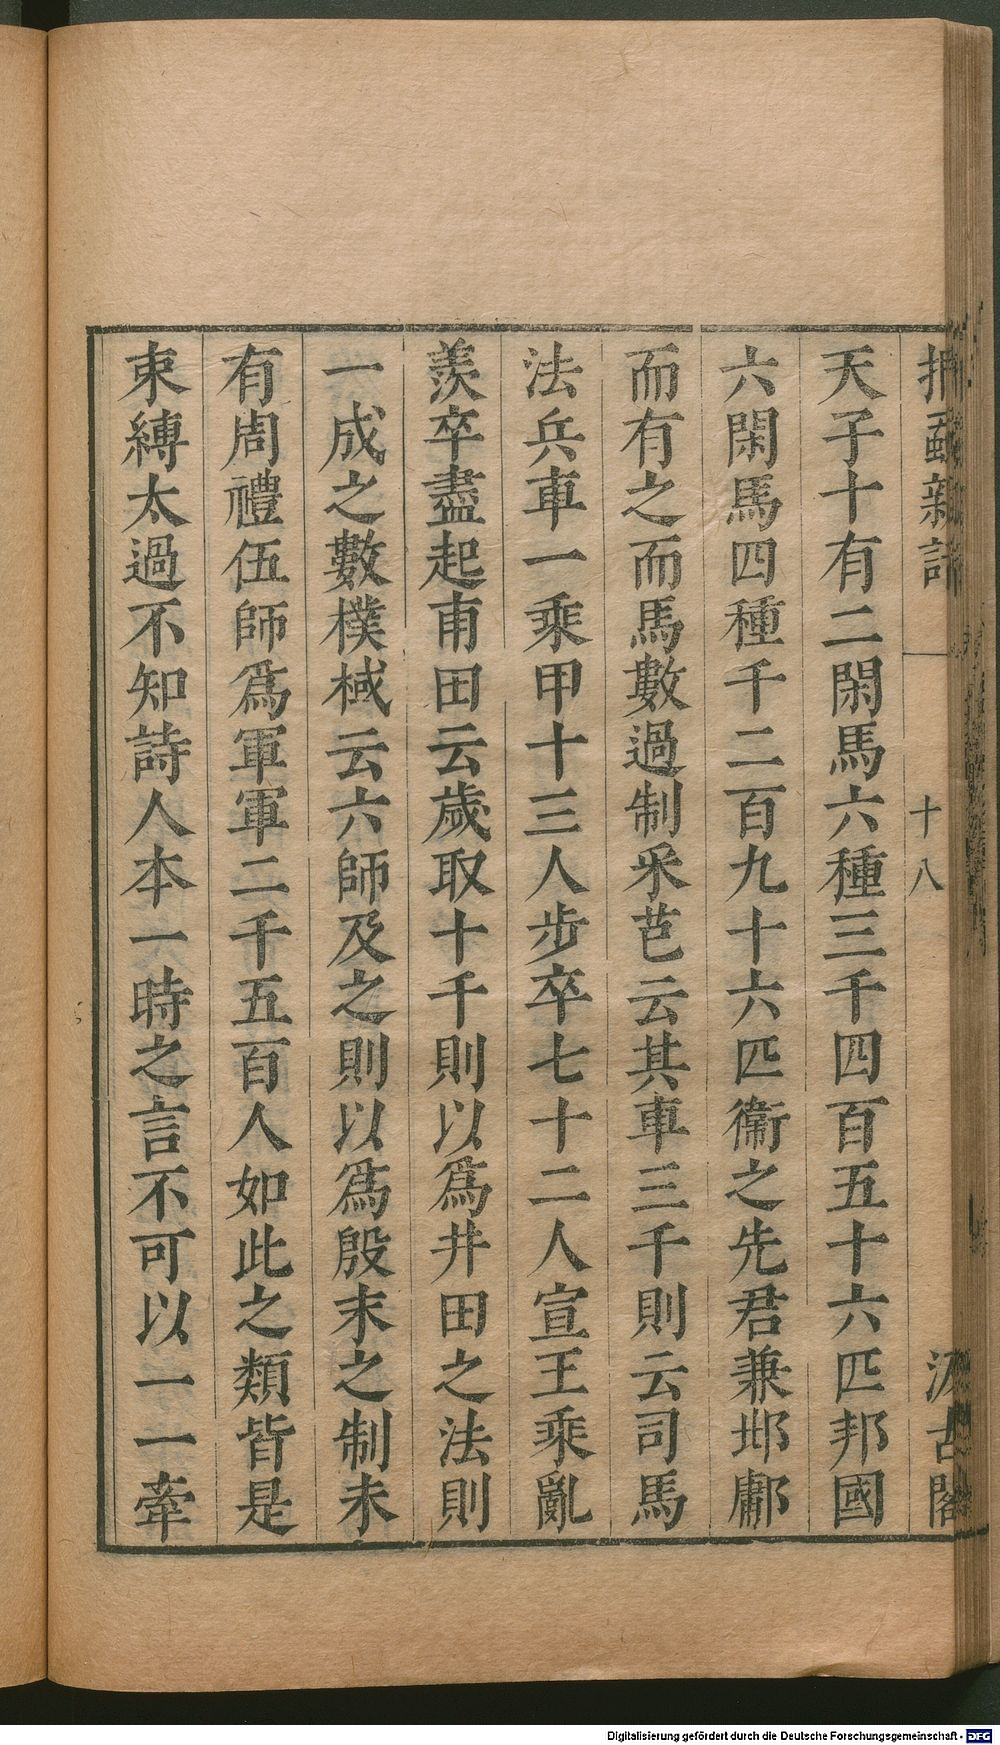 捫蝨新話
十八
汲古閣
天子十有二閑馬六種三千四百五十六匹邦國
六閑馬四種千二百九十六匹衞之先君兼邶鄘
而有之而馬數過制采芑云其車三千則云司馬
法兵車一乘甲十三人步卒七十二人宣王乘亂
羨卒盡起甫田云歲取十千則以爲井田之法則
一成之數樸棫云六師及之則以爲殷末之制未
有周禮伍師爲軍軍二千五百人如此之類皆是
束縛太過不知詩人本一時之言不可以一一牽
Digitalisierung gefördert durch die Deutsche Forschungsgemeinschaft - DFG